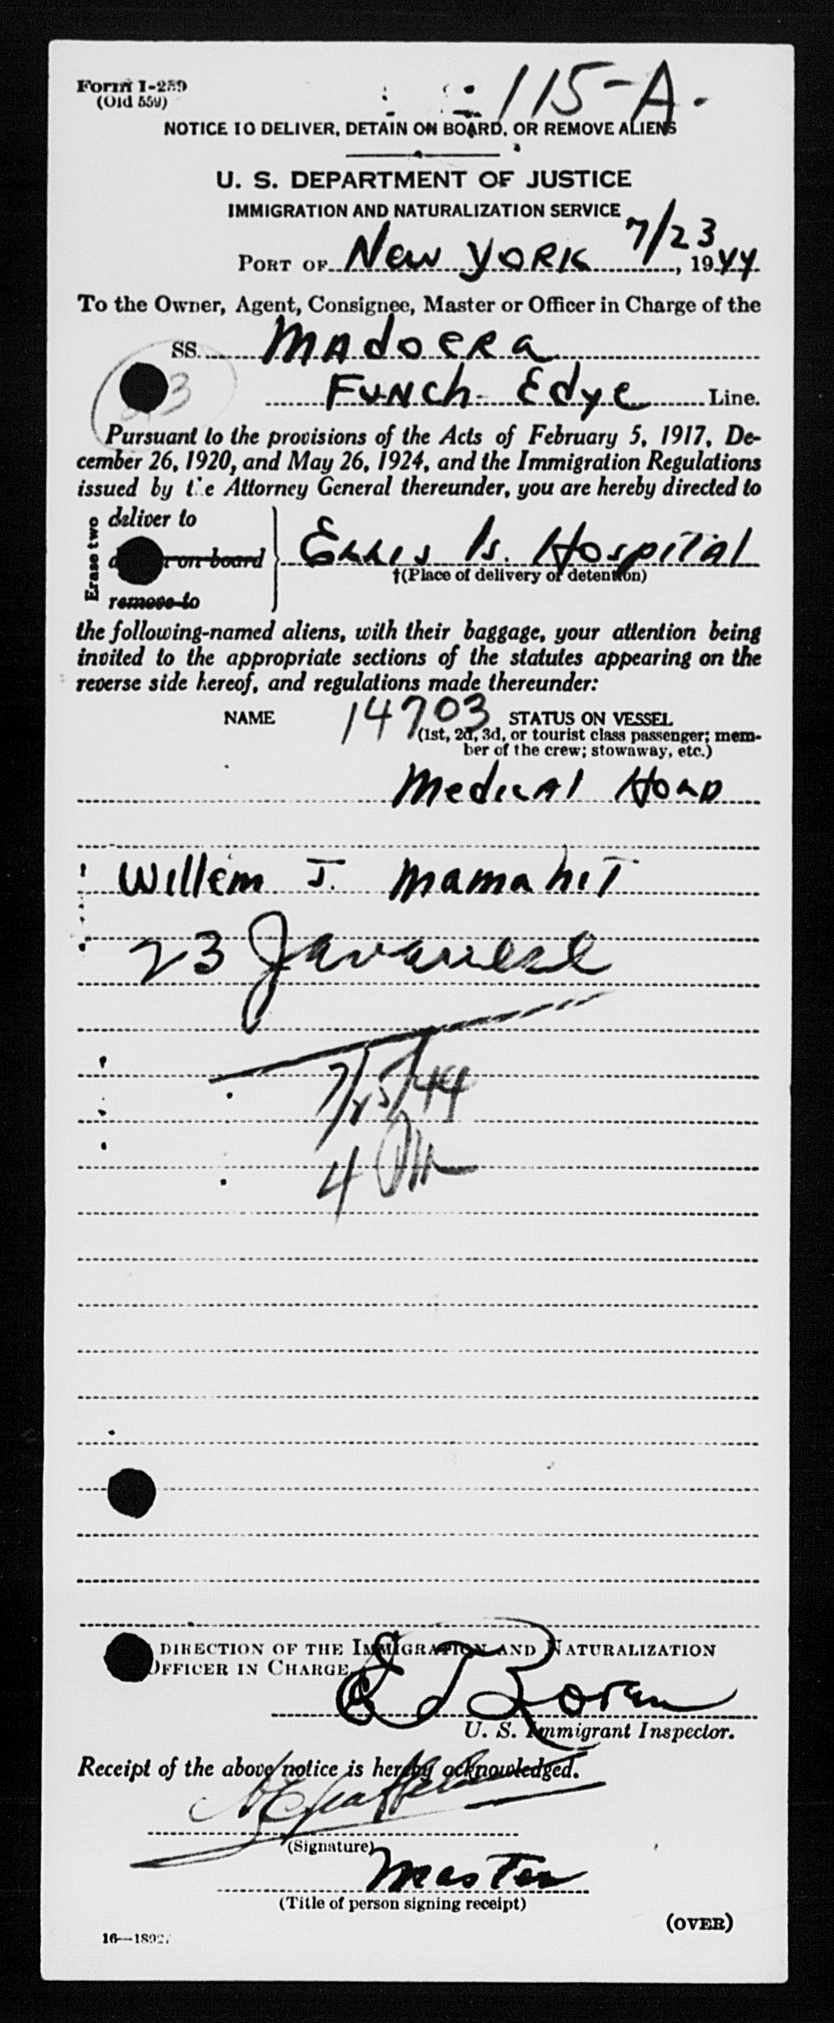 Form I-259
(Old 559)
115-A.
NOTICE TO DELIVER, DETAIN ON BOARD, OR REMOVE ALIENS
U. S. DEPARTMENT OF JUSTICE
IMMIGRATION AND NATURALIZATION SERVICE
PORT OF New York 7/23, 1944
To the Owner, Agent, Consignee, Master or Officer in Charge of the
SS. Madoera
Funch Edye Line.
Pursuant to the provisions of the Acts of February 5, 1917, De-
cember 26, 1920, and May 26, 1924, and the Immigration Regulations
issued by the Attorney General thereunder, you are hereby directed to
Erase two
deliver to
on board
remove to
Ellis Is. Hospital
†(Place of delivery or detention)
the following-named aliens, with their baggage, your attention being
invited to the appropriate sections of the statutes appearing on the
reverse side hereof, and regulations made thereunder:
NAME 14703 STATUS ON VESSEL
(1st, 2d, 3d, or tourist class passenger; mem-
ber of the crew; stowaway, etc.)
Medical Hold
Willem J. Mamahit
23 Javanese
7/25/44
4 PM
DIRECTION OF THE IMMIGRATION AND NATURALIZATION
OFFICER IN CHARGE
U. S. Immigrant Inspector.
Receipt of the above notice is hereby acknowledged.
(Signature)
Master
(Title of person signing receipt)
(OVER)